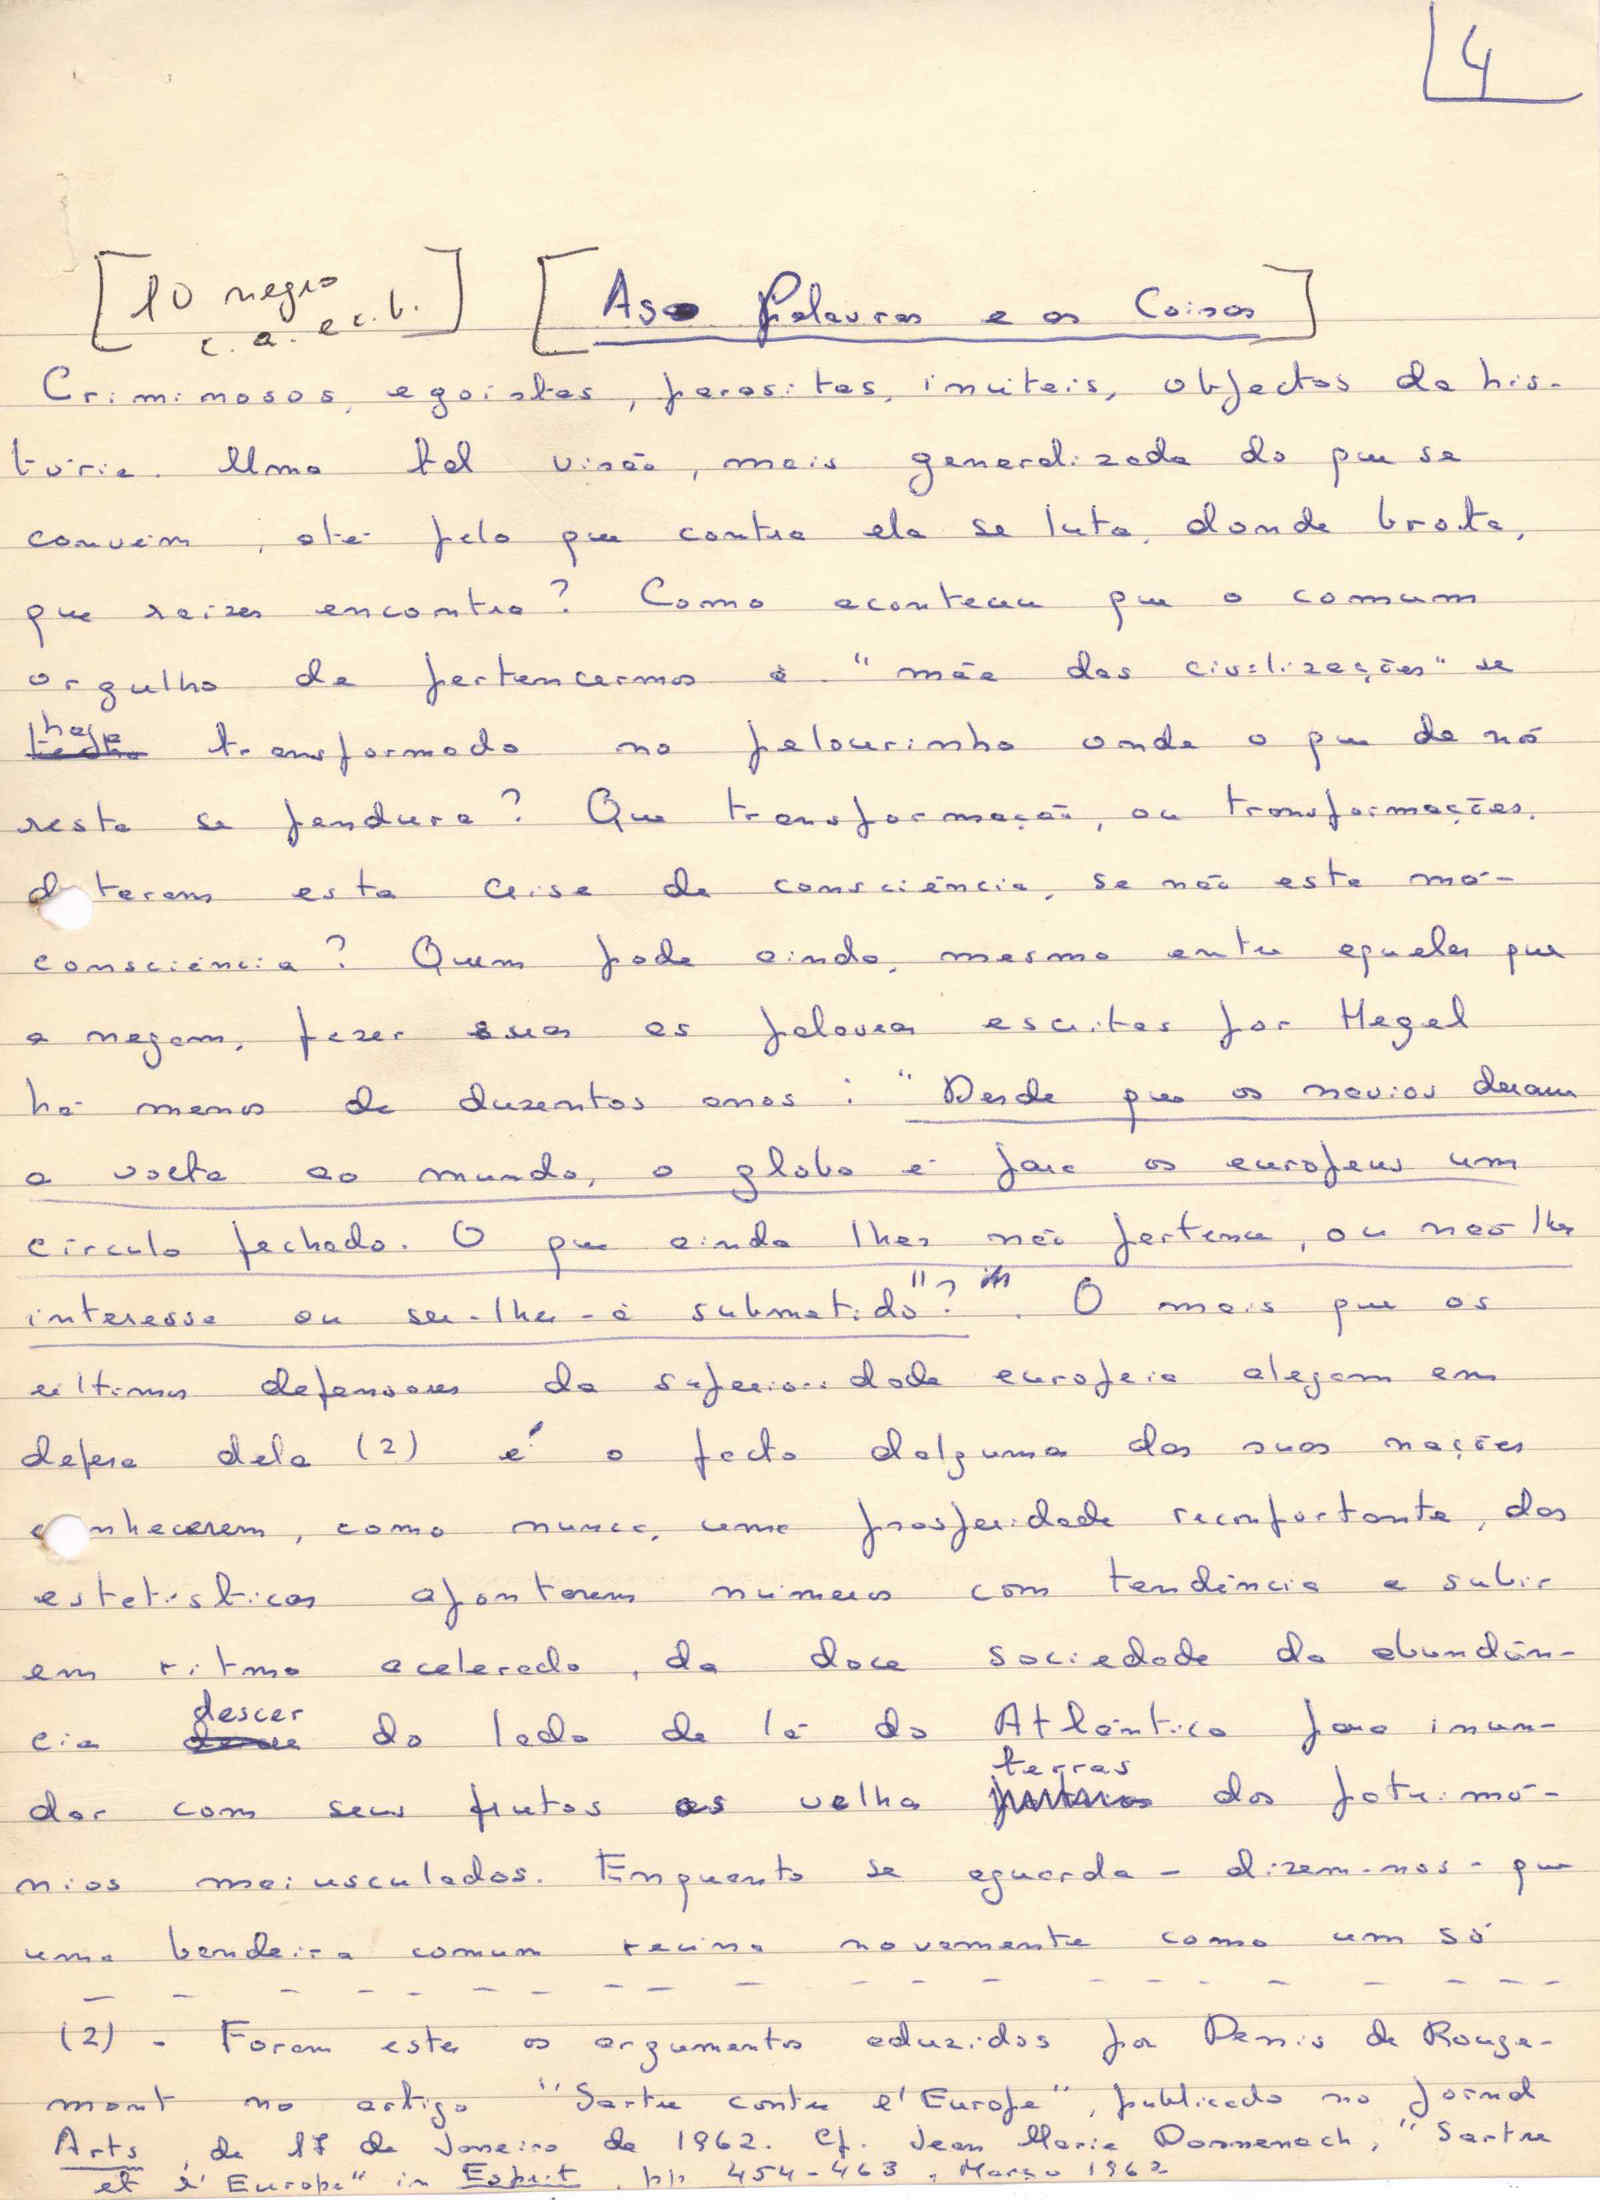 4
[10 negro
c. a. e c. b.] [As Palavras e as Coisas]
Criminosos, egoístas, parasitas, inúteis, objectos da his-
tória. Uma tal visão, mais generalizada do que se
convém, até pelo que contra ela se luta, donde brota,
que raízes encontra? Como aconteceu que o comum
orgulho de pertencermos à "mãe das civilizações" se
haja transformado no pelourinho onde o que de nós
resta se pendura? Que transformação, ou transformações,
dteram esta crise de consciência, se não esta má-
consciência? Quem pode ainda, mesmo entre aqueles que
a negam, fazer suas as palavras escritas por Hegel
há menos de duzentos anos: "Desde que os navios deram
a volta ao mundo, o globo é para os europeus um
círculo fechado. O que ainda lhes não pertence, ou não lhes
interessa ou ser-lhes-á submetido"? . O mais que os
últimos defensores da superioridade europeia alegam em
defesa dela (2) é o facto dalgumas das suas nações
conhecerem, como nunca, uma prosperidade reconfortante, das
estatísticas apontarem números com tendência a subir
em ritmo acelerado, da doce sociedade da abundân-
cia descer do lado de lá do Atlântico para inun-
dar com seus frutos as velha terras dos patrimó-
nios maiusculados. Enquanto se aguarda - dizem-nos - que
uma bandeira comum reúna novamente como um só
(2) - Foram estes os argumentos aduzidos por Denis de Rouge-
mont no artigo "Sartre contre l'Europe", publicado no jornal
Arts, de 17 de Janeiro de 1962. Cf. Jean Marie Domenach, "Sartre
et l'Europe" in Esprit, pp. 454-463, Março 1962